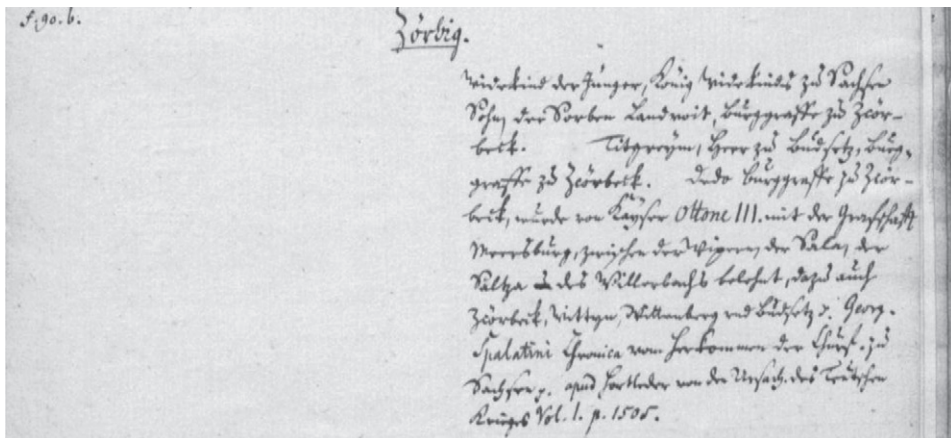 f. 90. b.
Zörbig.
Widekind der Jünger, König Widekinds zu Sachsen
Sohn, der Sorben Landvoit, Burggraffe zu Zcör-
beck. Titgreym, Herr zu Budsetz, Burg-
graffe zu Zcörbeck. Dedo Burggraffe zu Zcör-
beck, wurde von Kayser Ottone III. mit der Graffschafft
Meersburg, zwischen der Wipern, der Sala, der
Saltza & des Willerbachs belehnt, dazu auch
Zcörbeck, Wittyn, Wittenberg und Budsetz v. Georg.
Spalatini Chronica vom Herkommen der Churf. zu
Sachsen p. apud Hortleder von den Ursach. des Teutschen
Krieges Vol. I. p. 1505.